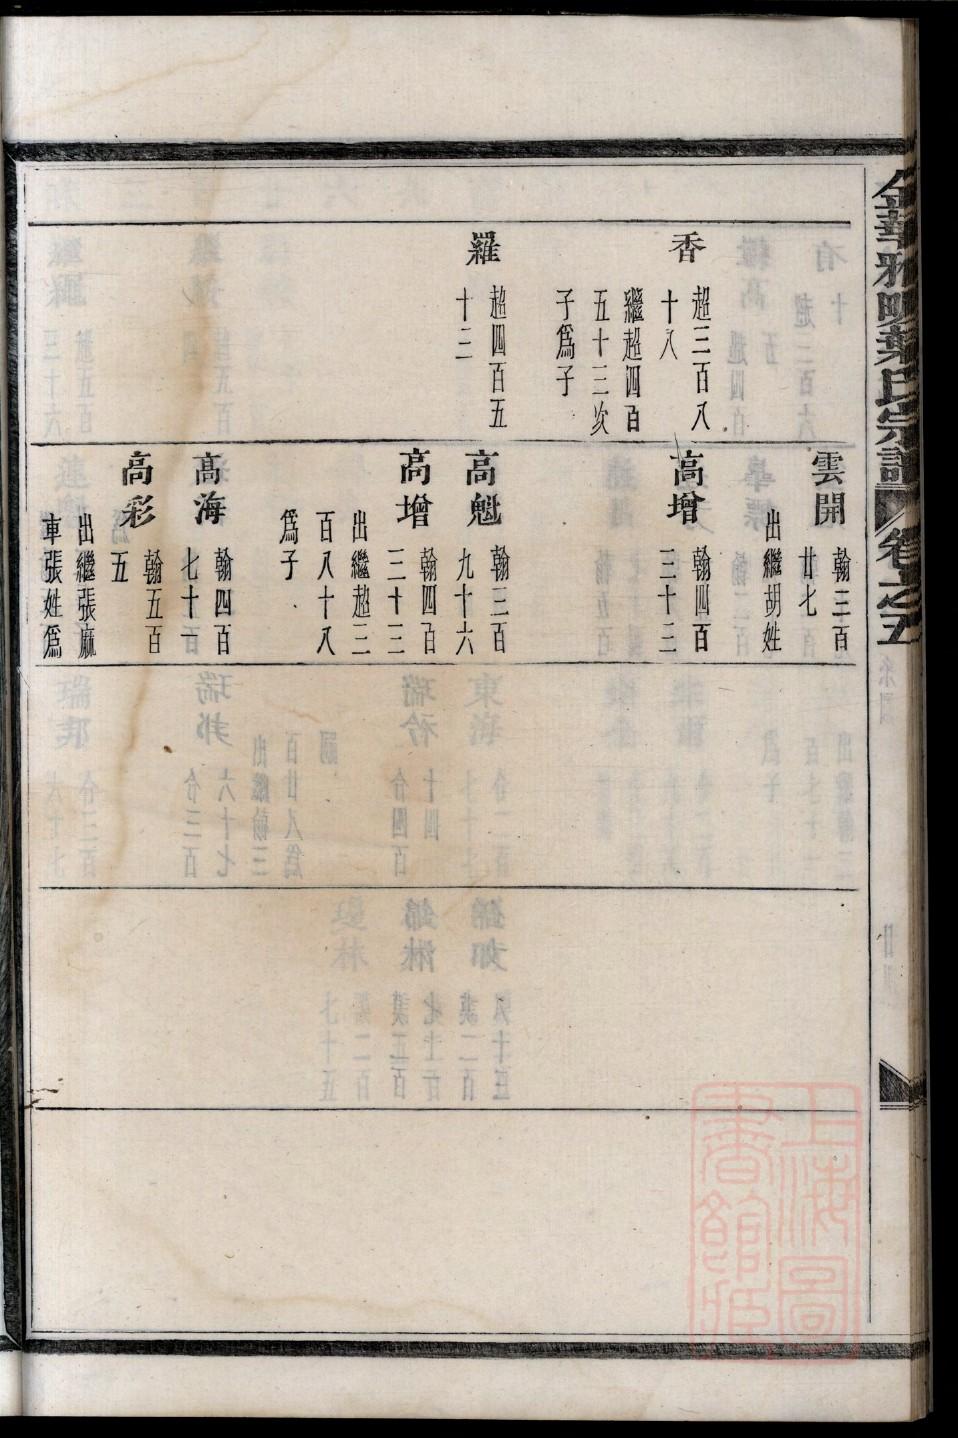 金華雅畈葉氏宗譜
卷之五
香
超三百八
十八
繼超四百
五十三次
子爲子
羅
超四百五
十三
雲開
翰三百
廿七
出繼胡姓
高增
翰四百
三十三
高魁
翰三百
九十六
高增
翰四百
三十三
出繼超三
百八十八
爲子
高海
翰四百
七十一
高彩
翰五百
五
出繼張麻
車張姓爲
上海圖
書館藏